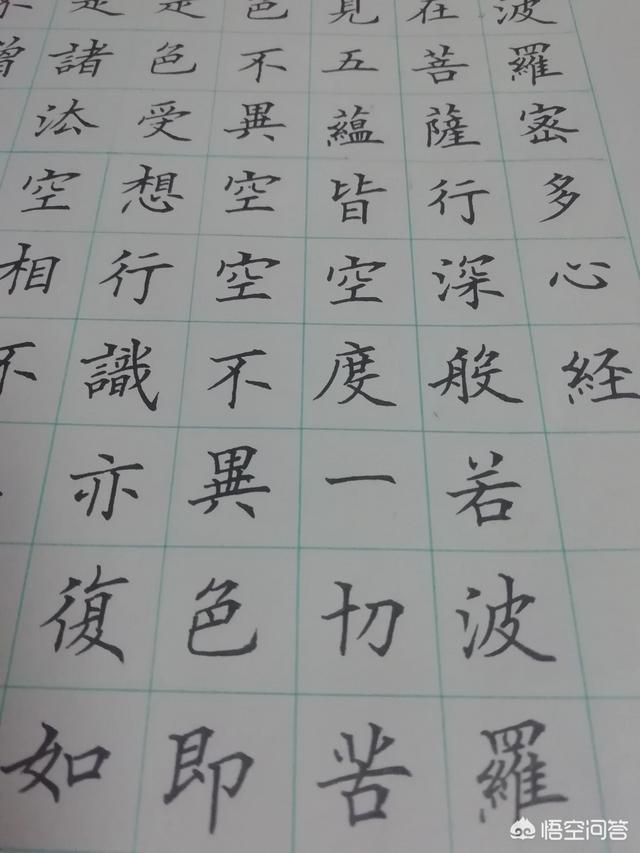 波羅密多心経
在菩薩行深般若波羅
見五蘊皆空度一切苦
色不異空空不異色即
是色受想行識亦復如
是諸法空相不
悟空问答